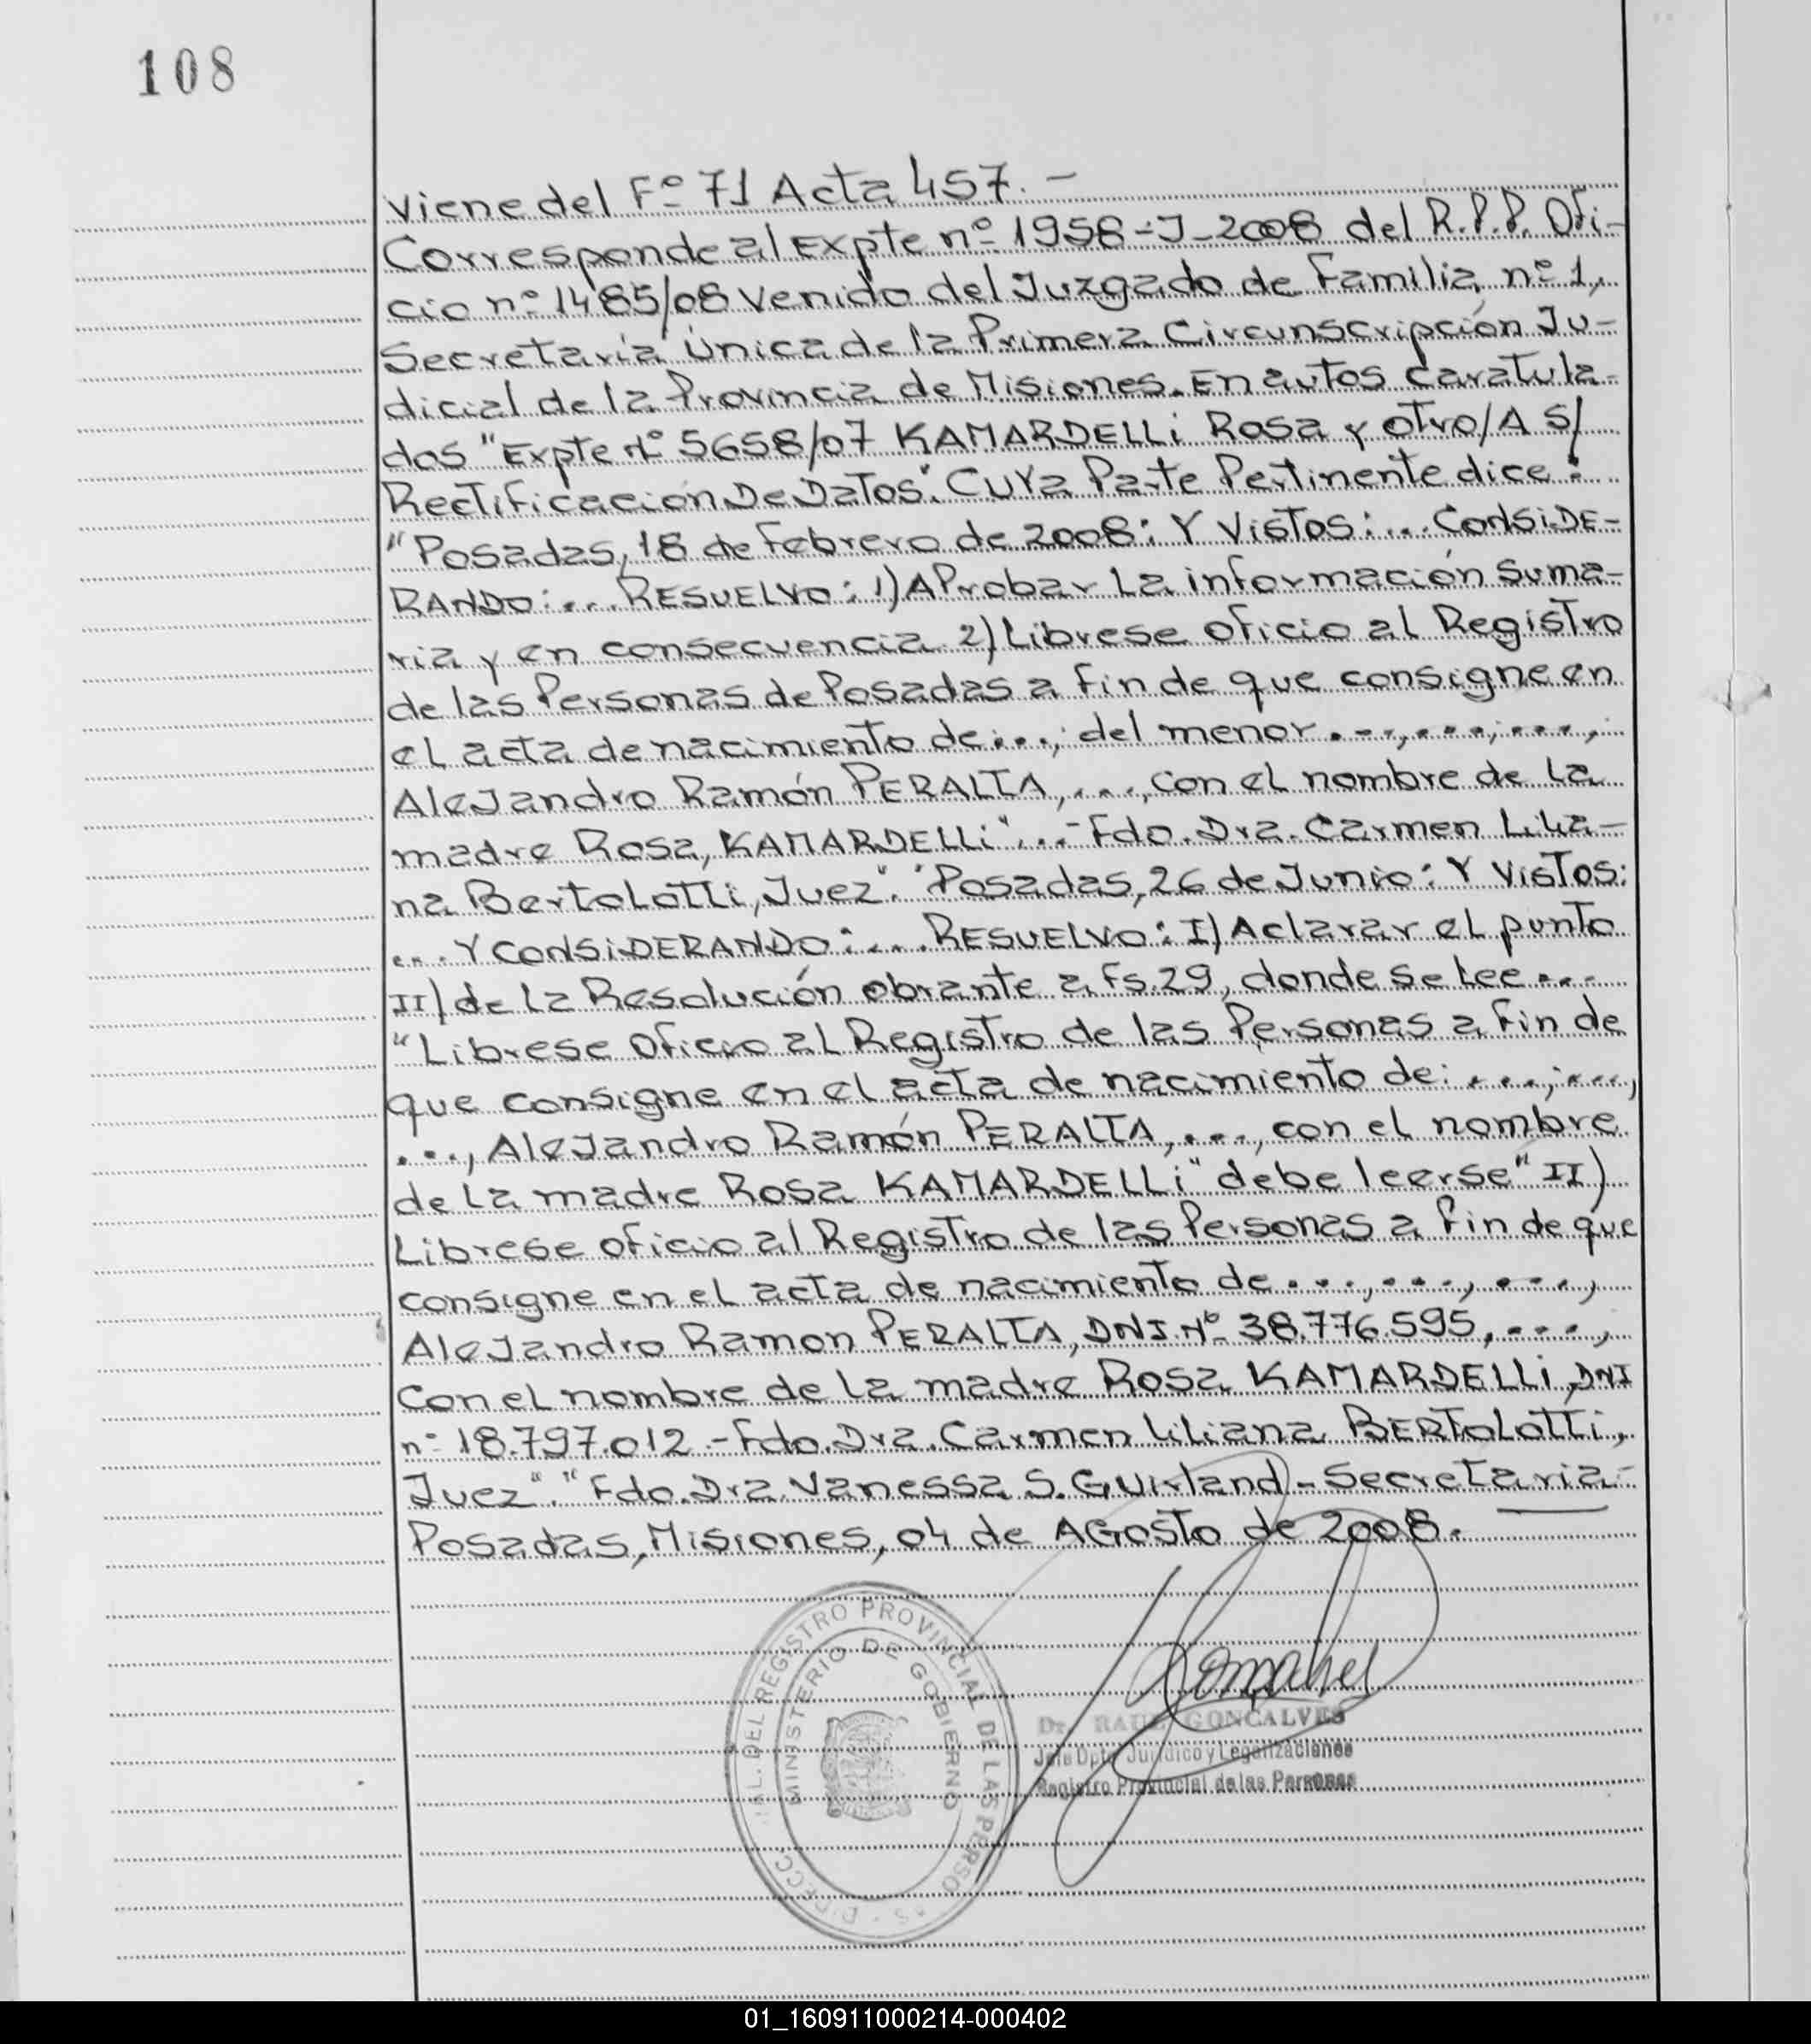 108
Viene del Fº 71 Acta 457. -
Corresponde al Expte nº 1958-J-2008 del R.P.P. Ofi-
cio nº 1485/08 Venido del Juzgado de Familia nº 1,
Secretaría Única de la Primera Circunscripción Ju-
dicial de la Provincia de Misiones. En autos caratula-
dos "Expte Nº 5658/07 KAMARDELLi Rosa y otro/A S/
Rectificación De Datos". Cuya Parte Pertinente dice:
"Posadas, 18 de Febrero de 2008: Y Vistos:... CONSiDE-
RANDO:... RESUELVO: 1) Aprobar La información Suma-
ria y en consecuencia 2) Librese oficio al Registro
de las Personas de Posadas a fin de que consigne en
el acta de nacimiento de...; del menor...,...;...,
Alejandro Ramón PERALTA,..., con el nombre de la
madre Rosa, KAMARDELLi"...- Fdo. Dra. Carmen Lilia-
na Bertolotti, Juez". "Posadas, 26 de Junio: Y Vistos:
... Y CONSiDERANDO:... RESUELVO: I) Aclarar el punto
II) de la Resolución obrante a fs. 29, donde se lee...
"Librese Oficio al Registro de las Personas a fin de
que consigne en el acta de nacimiento de: ...;...,
..., Alejandro Ramón PERALTA,..., con el nombre
de la madre Rosa KAMARDELLi" debe leerse" II)
Librese oficio al Registro de las Personas a fin de que
consigne en el acta de nacimiento de...,...,...,
Alejandro Ramon PERALTA, DNI. Nº 38.776.595,...,
Con el nombre de la madre Rosa KAMARDELLi, DNI
nº 18.797.012.- Fdo. Dra. Carmen Liliana BERTOLOTTi,
Juez". "Fdo. Dra. Vanessa S. Guirland - Secretaria-
Posadas, Misiones, 04 de Agosto de 2008.
DEL REGISTRO PROVINCIAL DE LAS PERSO
MINISTERIO DE GOBIERNO
Dr. RAUL GONCALVES
Jefe Dpto. Jurídico y Legalizaciones
Registro Provincial de las Personas
01_160911000214-000402